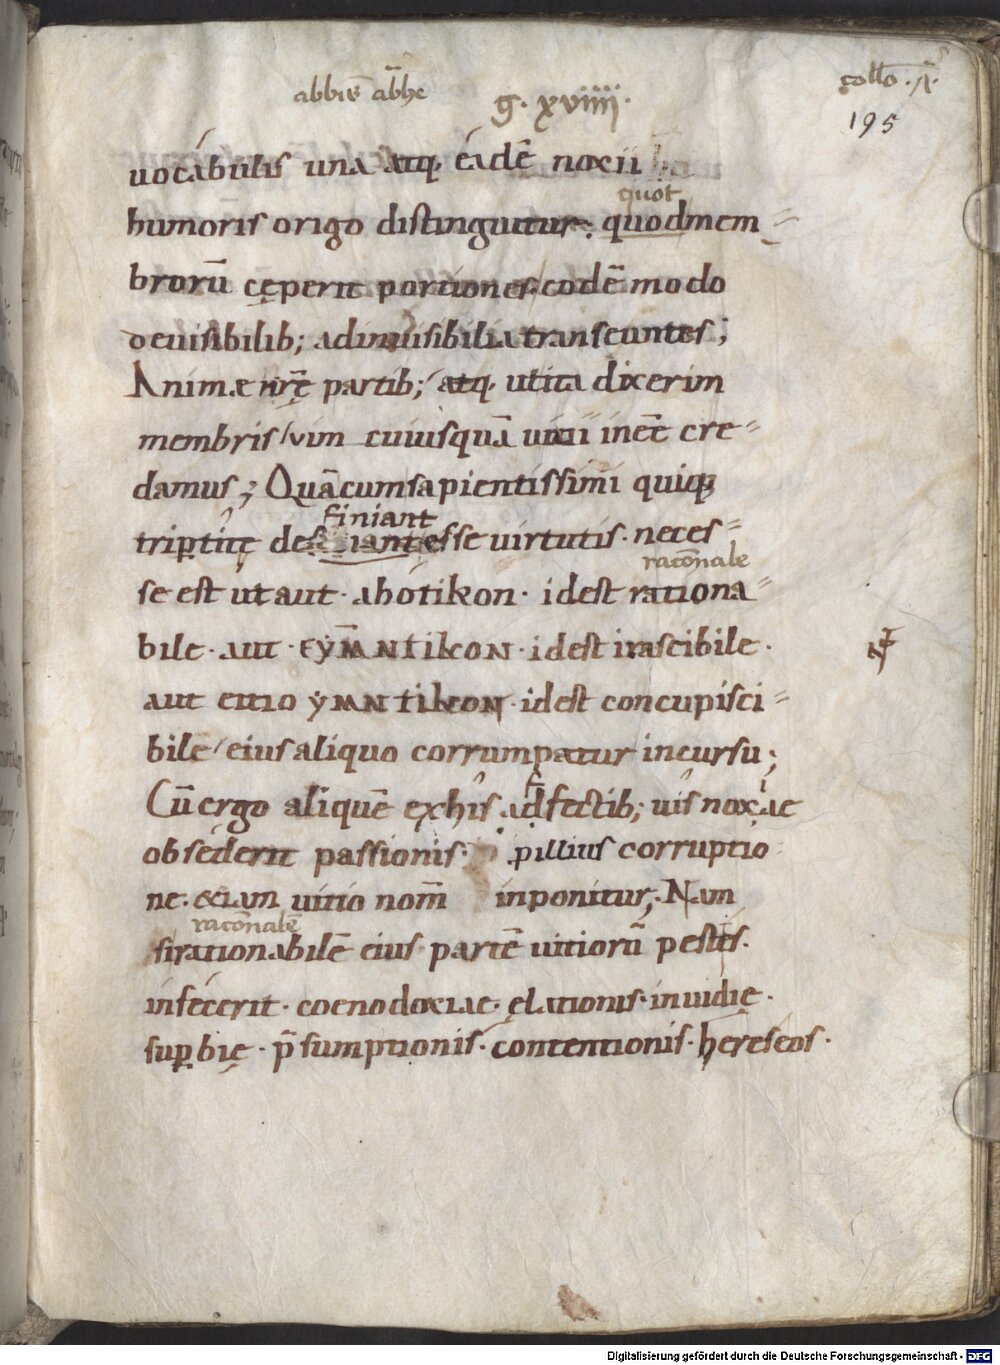 abbīs ābhe g. xviiii. collō. Ā.
195
uocabulis una atq; eadē noxii
quot
humoris origo distinguitur; quodmem
brorū cęperit portiones. eodē modo
deuisibilib; adinuisibilia transeuntes;
Animæ nr̄ę partib; atq; utita dixerim
membris uim cuiusquā uitii inēē cre
damus; Quācumsapientissimi quiq;
finiant
triptitę des esse uirtutis. neces
racōnale
se est ut aut. abotikon. idest rationa
bile. aut. idest irascibile.
aut idest concupisci
bile eius aliquo corrumpatur incursu;
Cū ergo aliquē exhis adfectib; uis noxiae
obsederit passionis. pillius corruptio
ne. etiam uitio nom̄ inponitur; Nam
racōnalē
sirationabilē eius partē uitiorū pestis.
infecerit. coenodoxiae. elationis. inuidię.
supbię. p̄sumptionis. contentionis. hereseos.
Digitalisierung gefördert durch die Deutsche Forschungsgemeinschaft - DFG